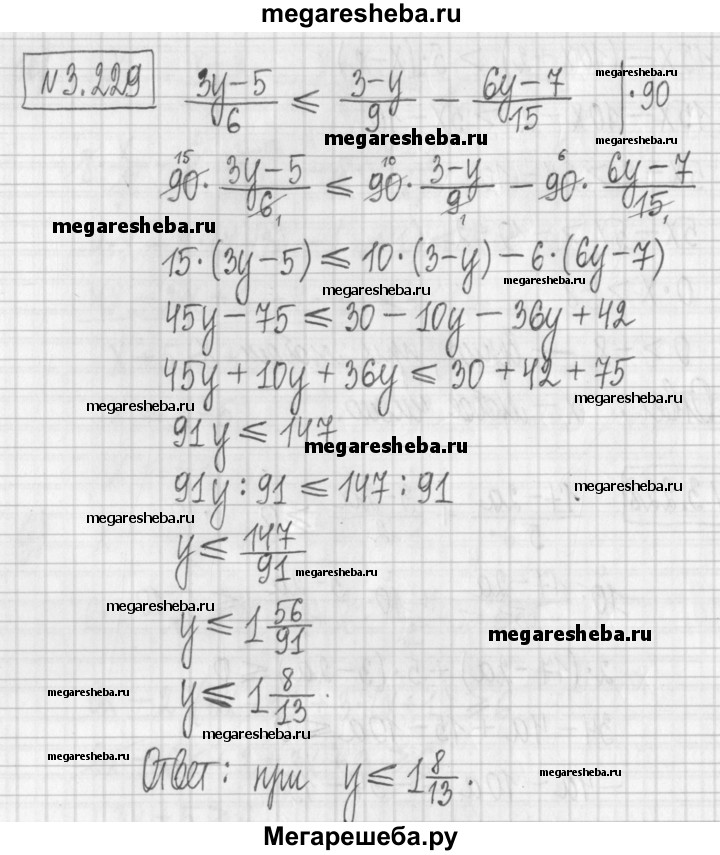 megaresheba.ru
№3.229 (3y-5)/6 ≤ (3-y)/9 - (6y-7)/15 | ·90
megaresheba.ru
megaresheba.ru
15 10 6
90·(3y-5)/6 ≤ 90·(3-y)/9 - 90·(6y-7)/15
1 1 1
megaresheba.ru
15·(3y-5) ≤ 10·(3-y) - 6·(6y-7)
megaresheba.ru megaresheba.ru
45y - 75 ≤ 30 - 10y - 36y + 42
45y + 10y + 36y ≤ 30 + 42 + 75
megaresheba.ru megaresheba.ru
91y ≤ 147
megaresheba.ru
91y : 91 ≤ 147 : 91
megaresheba.ru
megaresheba.ru
y ≤ 147/91
megaresheba.ru
megaresheba.ru
y ≤ 1 56/91
megaresheba.ru
y ≤ 1 8/13.
megaresheba.ru
megaresheba.ru
Ответ: при y ≤ 1 8/13.
megaresheba.ru
megaresheba.ru
Мегарешеба.ру